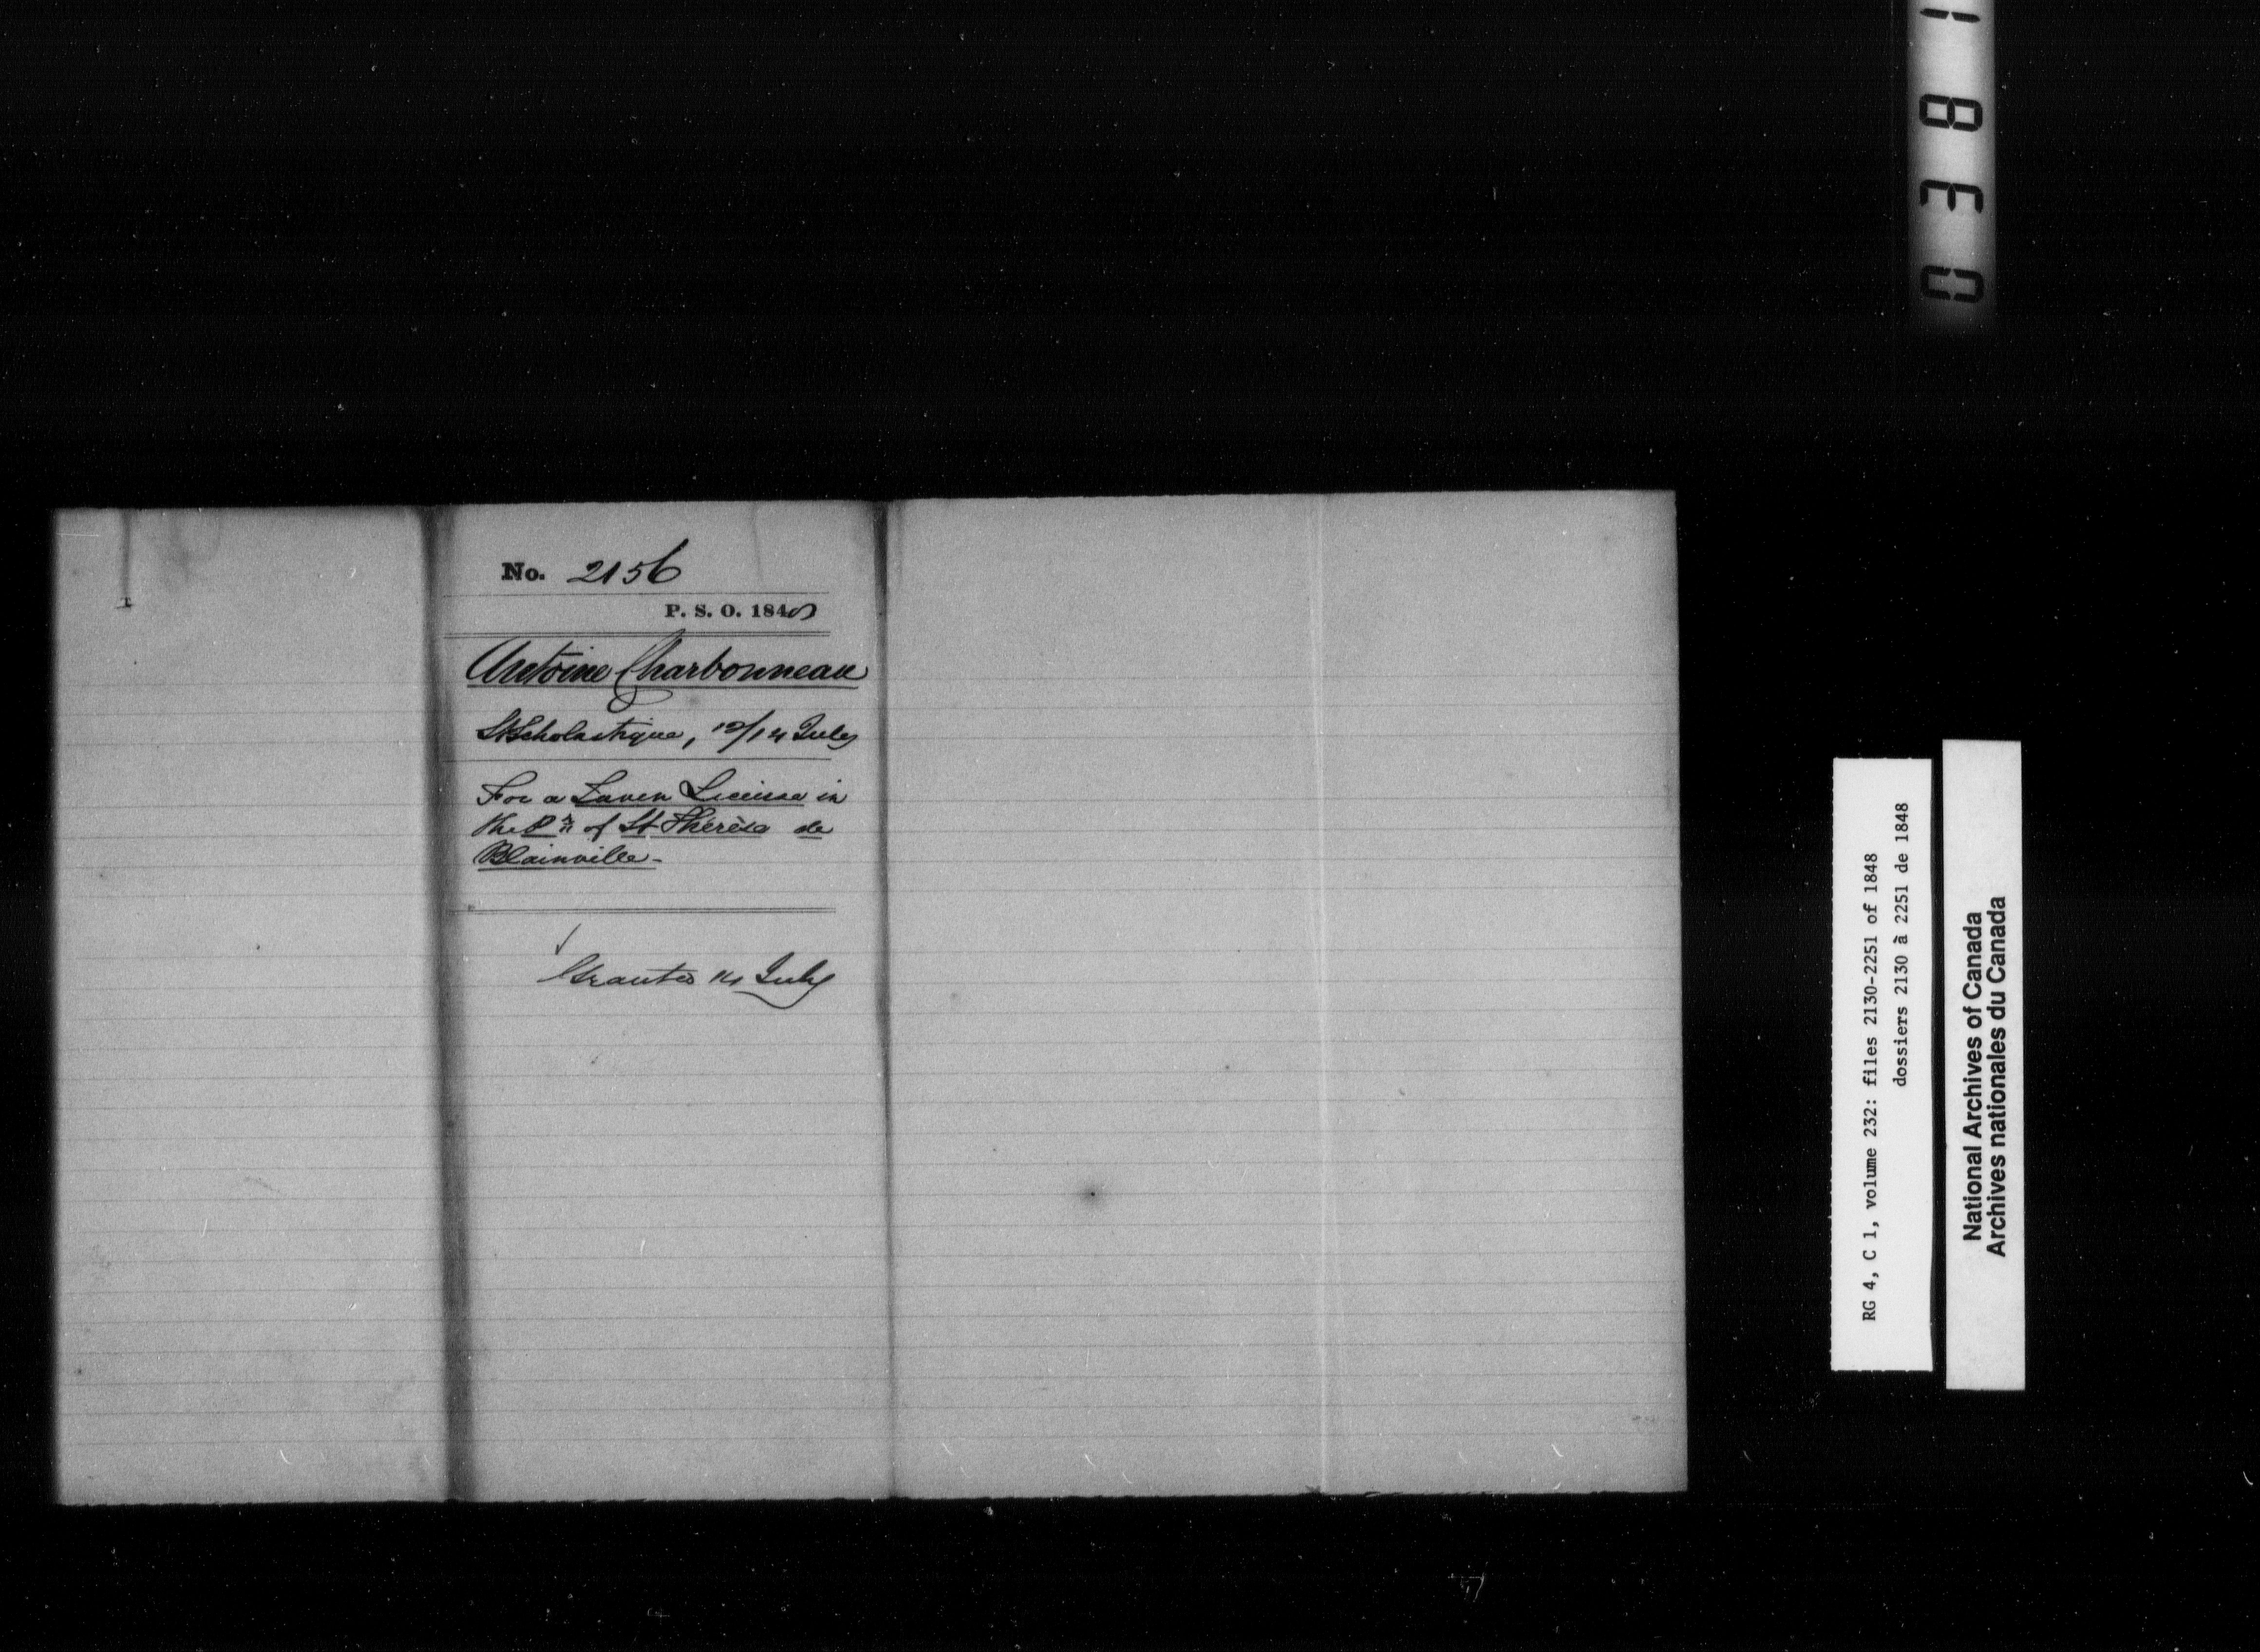 No. 2156
P. S. O. 1848
Antoine Charbonneau
St Scholastique, 12/14 July
For a Tavern License in
the Psh of St Thérèse de
Blainville-
Granted 14 July
0381
RG 4, C 1, volume 232: files 2130-2251 of 1848
dossiers 2130 à 2251 de 1848
National Archives of Canada
Archives nationales du Canada